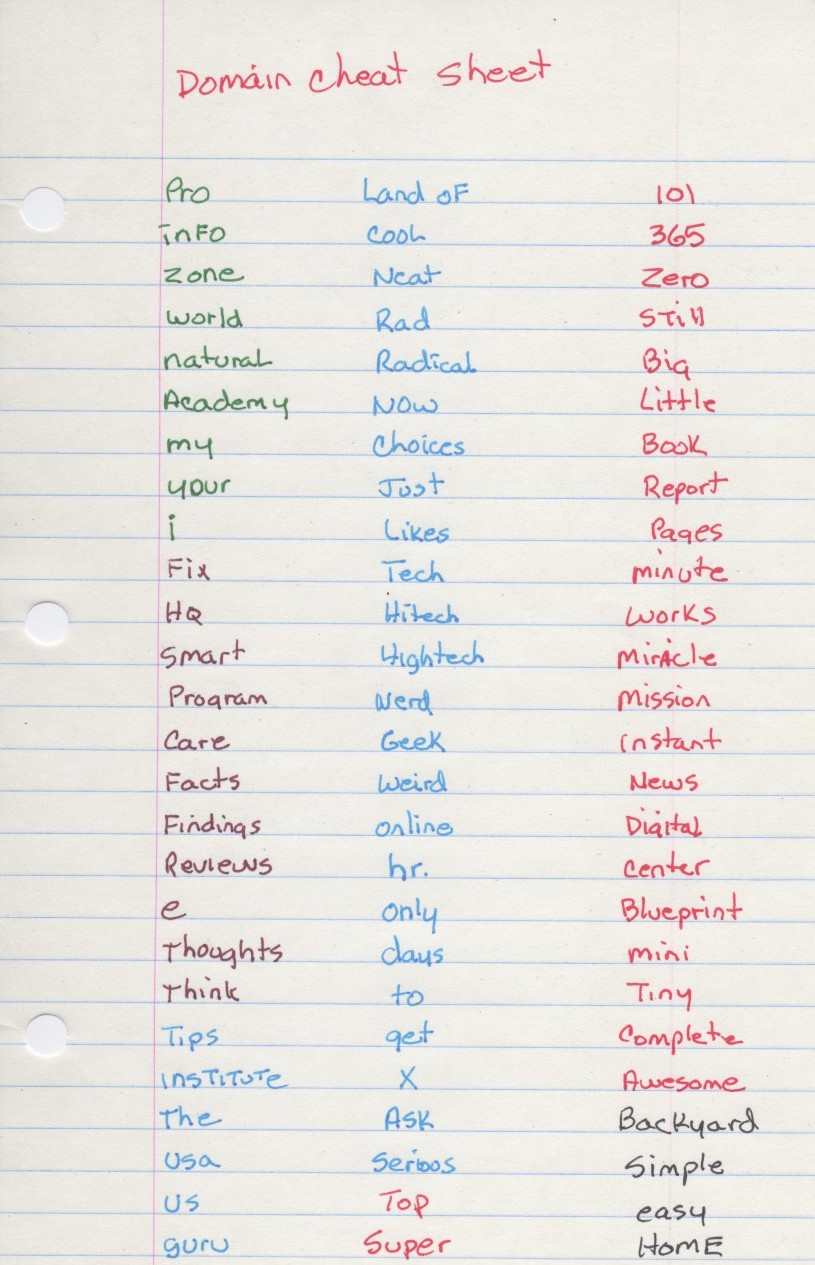 Domain cheat sheet
Pro Land of 101
info Cool 365
Zone Neat Zero
World Rad Still
natural Radical Big
Academy Now Little
my Choices Book
your Just Report
i Likes Pages
Fix Tech minute
HQ Hitech works
Smart Hightech Miracle
Program Nerd Mission
Care Geek instant
Facts Weird News
Findings online Digital
Reviews hr. center
e only Blueprint
Thoughts days mini
Think to Tiny
Tips get Complete
institute X Awesome
The Ask Backyard
Usa Serious Simple
US Top easy
guru Super HomE